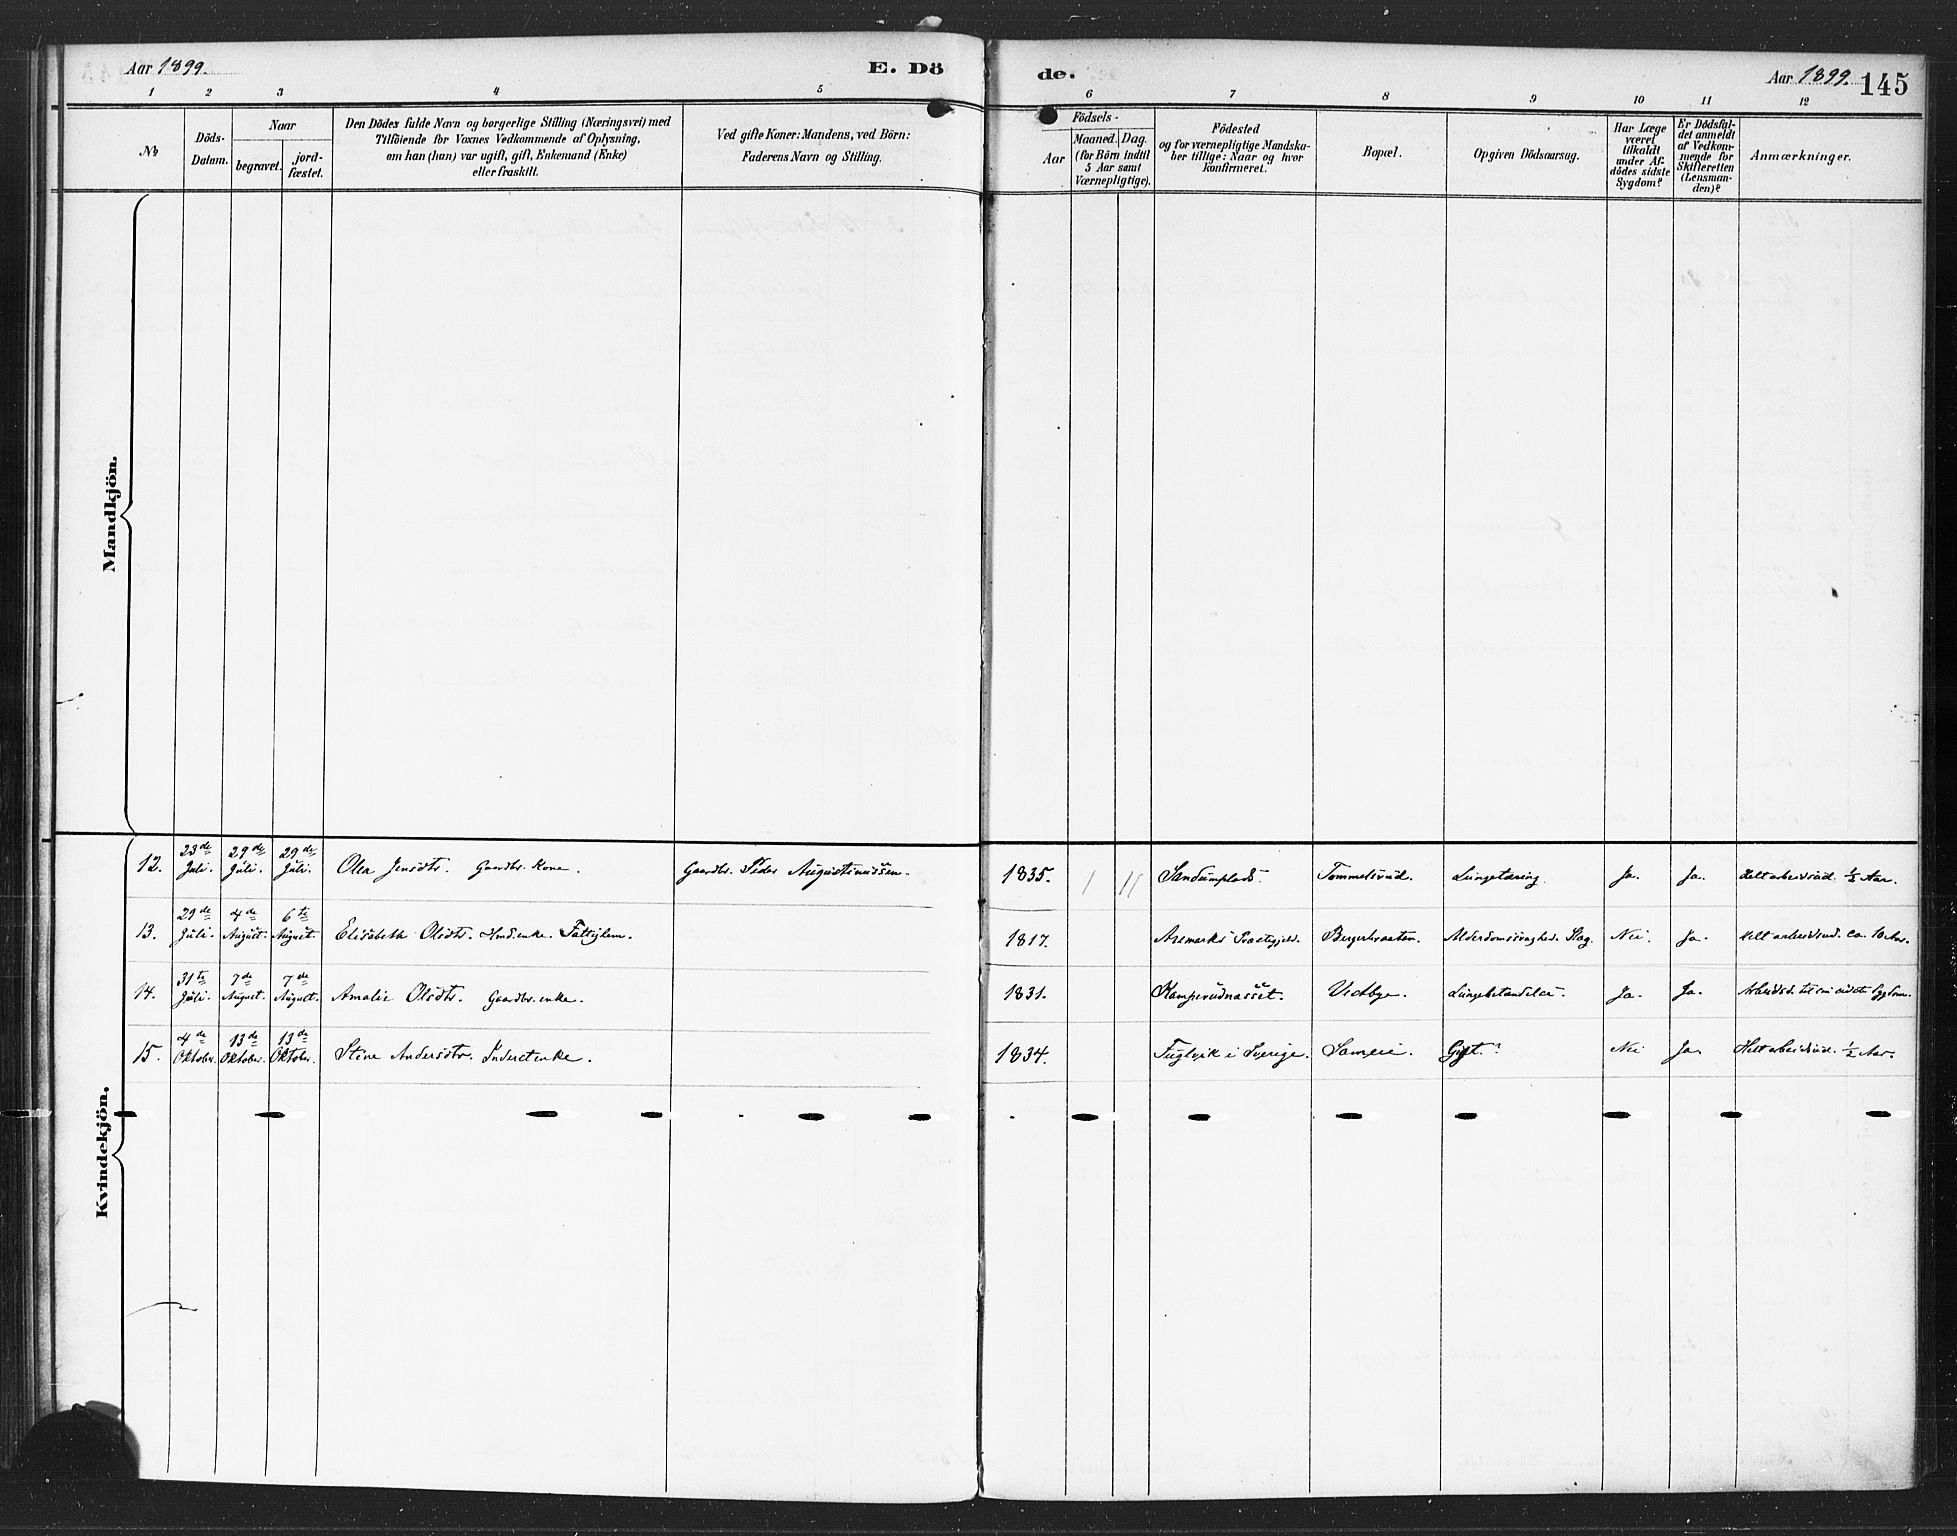 Aar 1899.
E. Dö
de.
Aar 1899.
145
1 2 3 4 5 6 7 8 9 10 11 12
No
Döds-
Datum.
Naar
begravet.
jord-
fæstet.
Den Dödes fulde Navn og borgerlige Stilling (Næringsvei) med
Tilföiende for Voxnes Vedkommende af Oplysning,
om han (hun) var ugift, gift, Enkemand (Enke)
eller fraskilt.
Ved gifte Koner: Mandens, ved Börn:
Faderens Navn og Stilling.
Födsels-
Aar
Maaned.
Dag.
(for Börn indtil
5 Aar samt
Værnepligtige).
Födested
og for værnepligtige Mandska-
ber tillige: Naar og hvor
konfirmeret.
Bopæl.
Opgiven Dödsaarsag.
Har Læge
været
tilkaldt
under Af-
dödes sidste
Sygdom?
Er Dödsfal-
det anmeldt
af Vedkom-
mende for
Skifteretten
(Lensman-
den)?
Anmærkninger.
Mandkjön.
Kvindekjön.
12. 23de Juli. 29de Juli. 29de Juli. Olea Jensdtr. Gaardbr. Kone. Gaardbr. Peder Augustinussen. 1835. 1 11 Sandumplads. Tommelsrud. Lungetæring. Ja. Ja. Helt arbeidsud. ½ Aar.
13. 29de Juli. 4de August. 6te August. Elisabeth Olsdtr. Hmds.enke. Fattiglem. 1817. Aremarks Præstegjeld. Bergerbraaten. Alderdomssvaghed. Slag. Nei. Ja. Helt arbeidsud. ca. 10 Aar.
14. 31te Juli. 7de August. 7de August. Amalie Olsdtr. Gaardbr. enke. 1831. Kamperudnæsset. Vestbye. Lungebetændelse. Ja. Ja. Arbeidsd. til sin sidste Sygdom.
15. 4de Oktober. 13de Oktober. 13de Oktober. Stine Andersdtr. Inderstenke. 1834. Fuglvik i Sverige. Sameie. Gigt.? Nei Ja. Helt arbeidsud. ½ Aar.